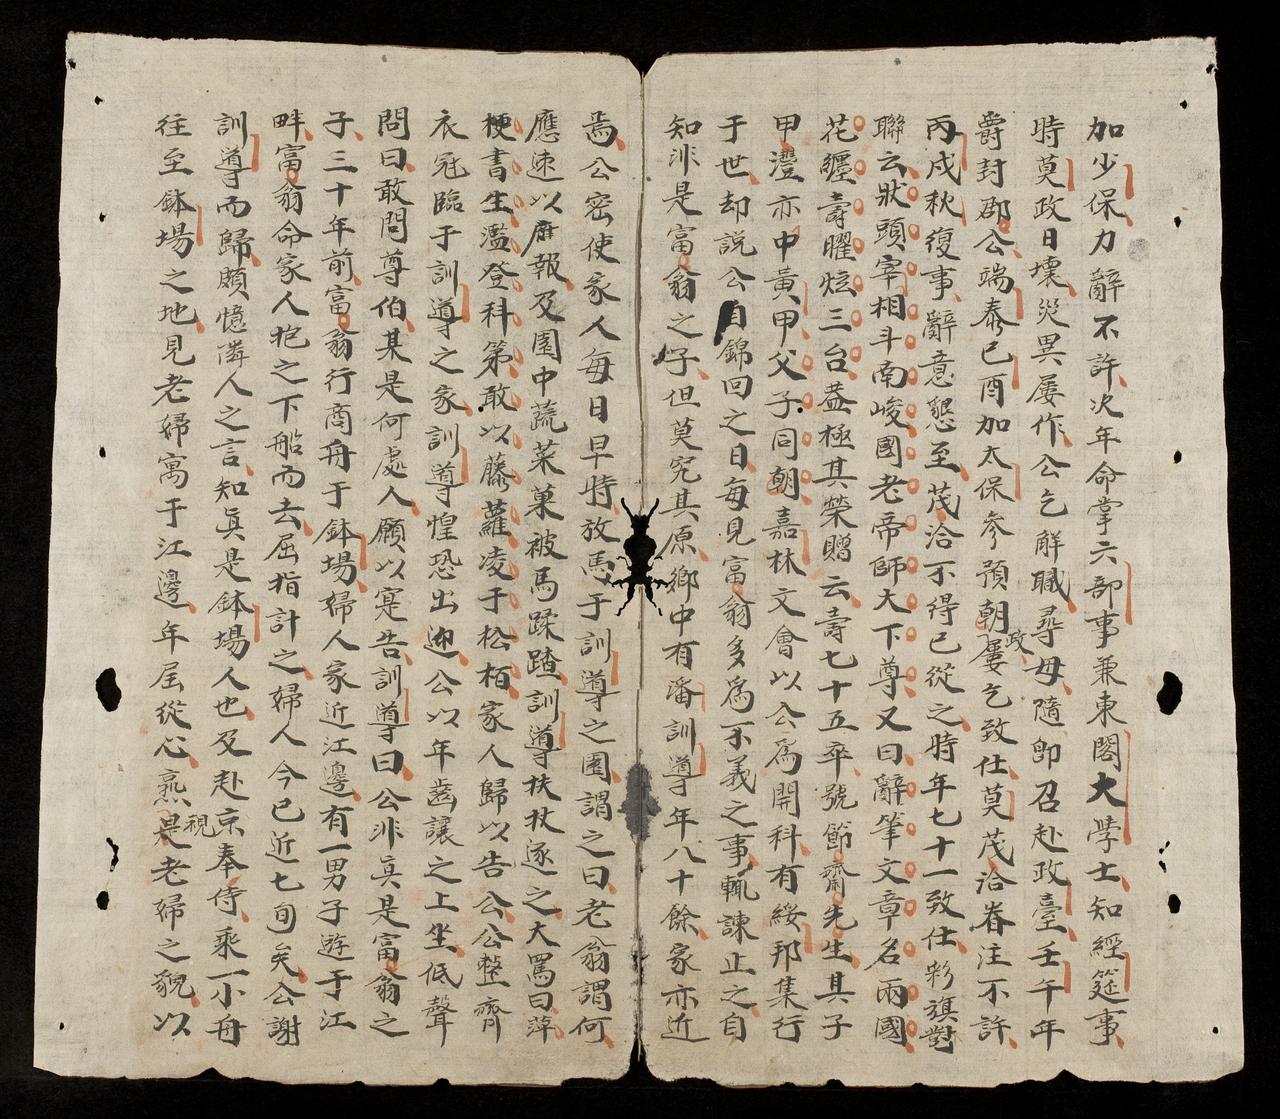 加少保力辭不許次年命掌六部事兼東閣大學士知經筵事
時莫政日壞災異屢作公乞解職尋毋隨即召赴政臺壬午年
爵封郡公端泰己酉加太保參預朝政屢乞致仕莫茂洽眷注不許
丙戌秋復事辭意懇至茂洽不得已從之時年七十一致仕彩旗對
聯云狀頭宰相斗南峻國老帝師大下尊又曰辭筆文章名兩國
花纏壽曜炫三台蓋極其榮贈云壽七十五卒號節齋先生其子
甲澧亦中黃甲父子同朝嘉林文會以公爲開科有綏邦集行
于世却説公自錦回之日每見富翁多爲不義之事輒諫止之自
知非是富翁之子但莫究其原鄉中有潘訓導年八十餘家亦近
焉公密使家人每日早時放馬于訓導之園謂之曰老翁謂何
應速以䧹報及園中蔬菜菓被馬蹂踏訓導扶杖逐之大罵曰萍
梗書生濫登科第敢以藤蘿凌于松栢家人歸以告公公整齊
衣冠臨于訓導之家訓導惶恐出迎公以年齒讓之上坐低聲
問曰敢問尊伯某是何處人願以寔告訓導曰公非眞是富翁之
子三十年前富翁行商舟于鉢場婦人家近江邊有一男子遊于江
畔富翁命家人抱之下船而去屈指計之婦人今已近七旬矣公謝
訓導而歸頗憶隣人之言知眞是鉢場人也及赴京奉侍乘一小舟
往至鉢場之地見老婦寓于江邊年屆從心熟視是老婦之貌以